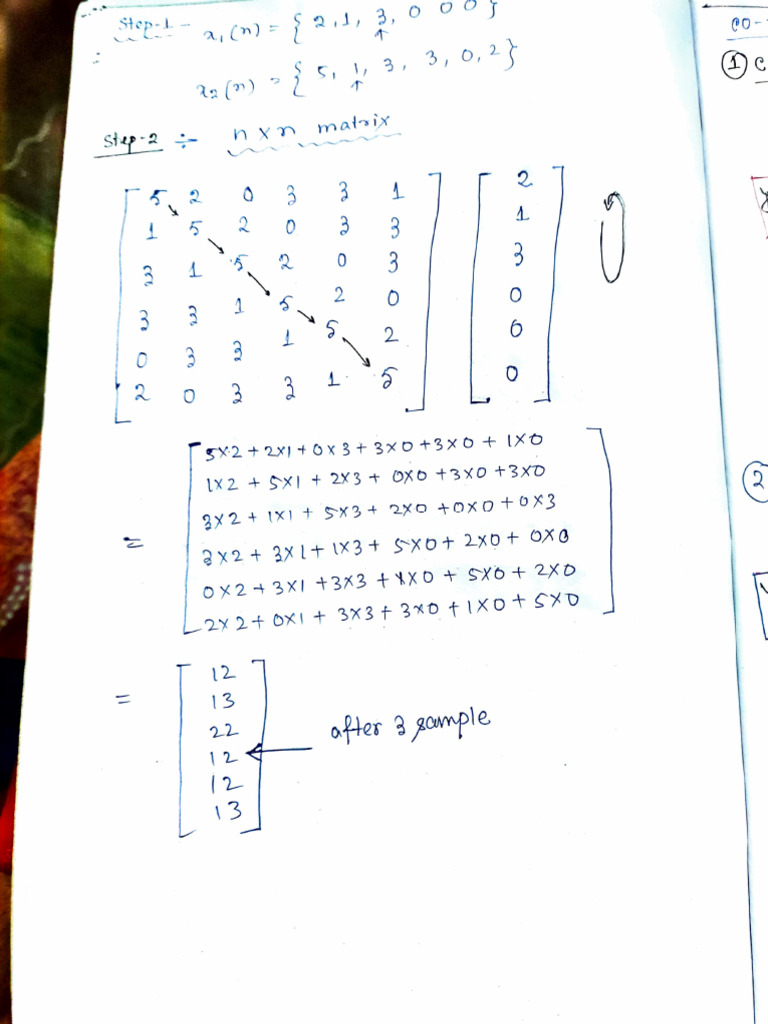 Step-1 - x₁(n) = { 2, 1, 3, 0 0 0 }
↑
x₂(n) = { 5, 1, 3, 3, 0, 2 }
↑
Step-2 ÷ n x n matrix
5 2 0 3 3 1
1 5 2 0 3 3
3 1 5 2 0 3
3 3 1 5 2 0
0 3 3 1 5 2
2 0 3 3 1 5
2
1
3
0
0
0
5×2 + 2×1 + 0×3 + 3×0 + 3×0 + 1×0
1×2 + 5×1 + 2×3 + 0×0 + 3×0 + 3×0
3×2 + 1×1 + 5×3 + 2×0 + 0×0 + 0×3
= 3×2 + 3×1 + 1×3 + 5×0 + 2×0 + 0×0
0×2 + 3×1 + 3×3 + 1×0 + 5×0 + 2×0
2×2 + 0×1 + 3×3 + 3×0 + 1×0 + 5×0
12
= 13
22
12 ← after 3 sample
12
13
CO-
① C
②